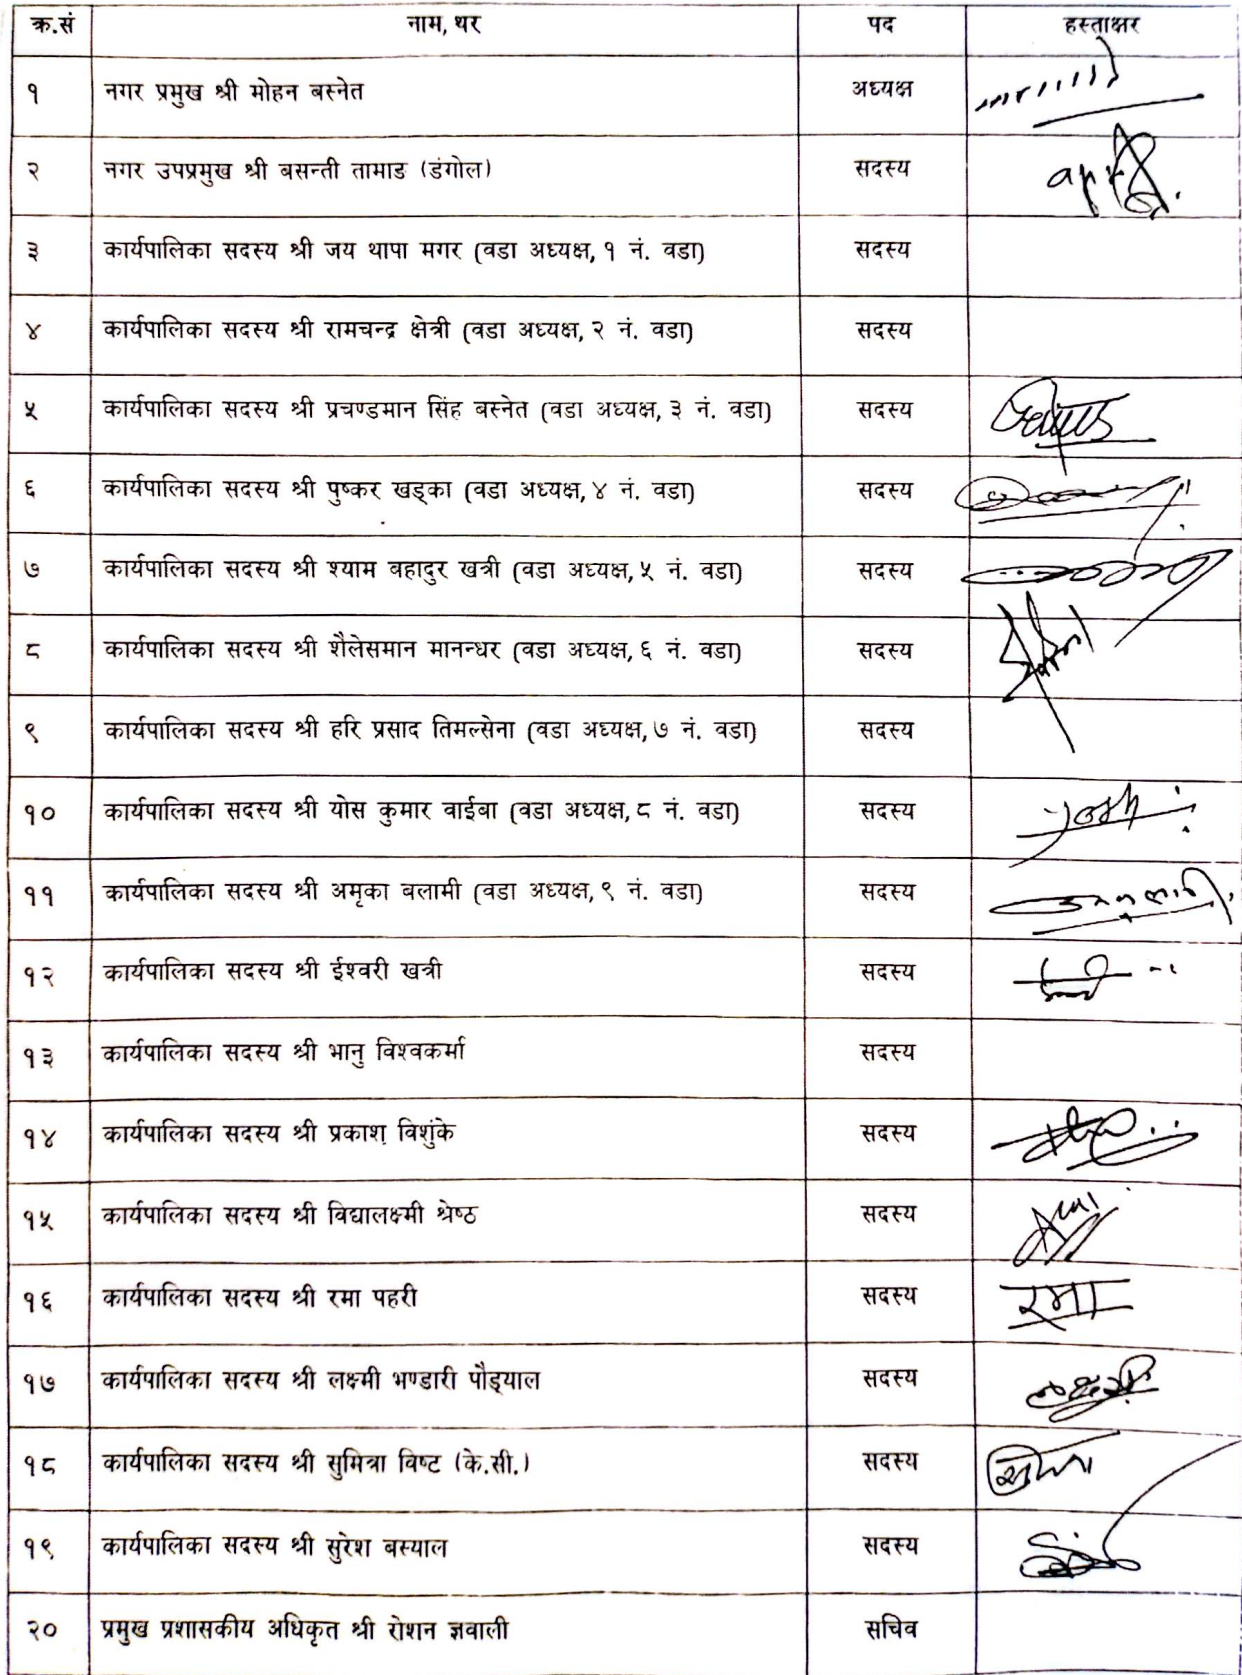 क्र.सं नाम, थर पद हस्ताक्षर
१ नगर प्रमुख श्री मोहन बस्नेत अध्यक्ष
२ नगर उपप्रमुख श्री बसन्ती तामाङ (डंगोल) सदस्य
३ कार्यपालिका सदस्य श्री जय थापा मगर (वडा अध्यक्ष, १ नं. वडा) सदस्य
४ कार्यपालिका सदस्य श्री रामचन्द्र क्षेत्री (वडा अध्यक्ष, २ नं. वडा) सदस्य
५ कार्यपालिका सदस्य श्री प्रचण्डमान सिंह बस्नेत (वडा अध्यक्ष, ३ नं. वडा) सदस्य
६ कार्यपालिका सदस्य श्री पुष्कर खड्का (वडा अध्यक्ष, ४ नं. वडा) सदस्य
७ कार्यपालिका सदस्य श्री श्याम बहादुर खत्री (वडा अध्यक्ष, ५ नं. वडा) सदस्य
८ कार्यपालिका सदस्य श्री शैलेसमान मानन्धर (वडा अध्यक्ष, ६ नं. वडा) सदस्य
९ कार्यपालिका सदस्य श्री हरि प्रसाद तिमल्सेना (वडा अध्यक्ष, ७ नं. वडा) सदस्य
१० कार्यपालिका सदस्य श्री योस कुमार वाईबा (वडा अध्यक्ष, ८ नं. वडा) सदस्य
११ कार्यपालिका सदस्य श्री अमृका बलामी (वडा अध्यक्ष, ९ नं. वडा) सदस्य
१२ कार्यपालिका सदस्य श्री ईश्वरी खत्री सदस्य
१३ कार्यपालिका सदस्य श्री भानु विश्वकर्मा सदस्य
१४ कार्यपालिका सदस्य श्री प्रकाश विशुंके सदस्य
१५ कार्यपालिका सदस्य श्री विद्यालक्ष्मी श्रेष्ठ सदस्य
१६ कार्यपालिका सदस्य श्री रमा पहरी सदस्य रमा
१७ कार्यपालिका सदस्य श्री लक्ष्मी भण्डारी पौड्याल सदस्य
१८ कार्यपालिका सदस्य श्री सुमित्रा विष्ट (के.सी.) सदस्य
१९ कार्यपालिका सदस्य श्री सुरेश बस्याल सदस्य
२० प्रमुख प्रशासकीय अधिकृत श्री रोशन ज्ञवाली सचिव